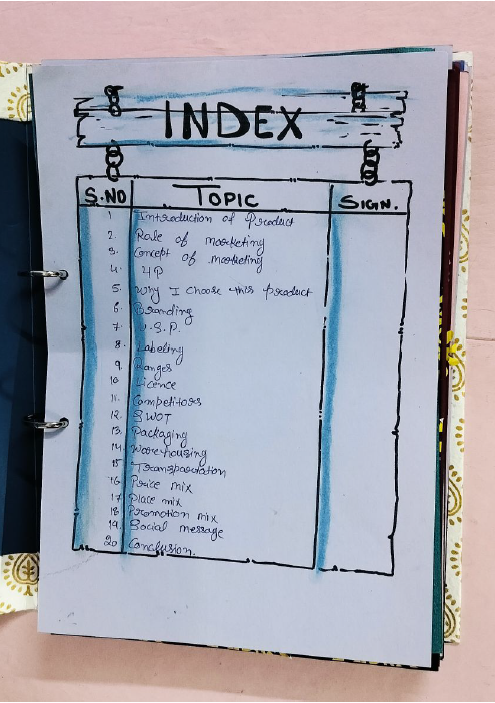 INDEX
S.NO TOPIC SIGN.
1 Introduction of Product
2. Role of marketing
3. Concept of marketing
4. 4P
5. Why I choose this product
6. Branding
7. U.S.P.
8. Labeling
9. Ranges
10 Licence
11. Competitors
12. SWOT
13. Packaging
14. Warehousing
15 Transportation
16 Price mix
17 Place mix
18 Promotion mix
19. Social message
20 Conclusion.